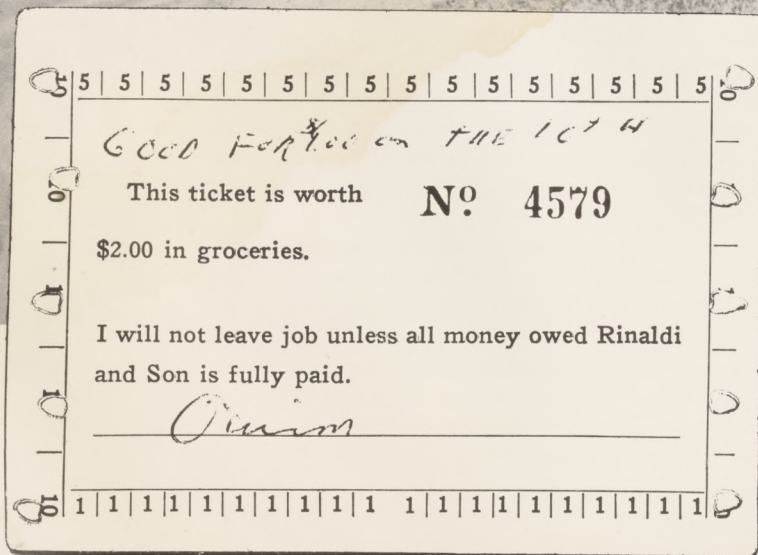 5 | 5 | 5 | 5 | 5 | 5 | 5 | 5 | 5 | 5 | 5 | 5 | 5 | 5 | 5 | 5
GOOD FOR $1.00 on THE 10TH
This ticket is worth Nº 4579
$2.00 in groceries.
I will not leave job unless all money owed Rinaldi
and Son is fully paid.
1 | 1 | 1 | 1 | 1 | 1 | 1 | 1 | 1 | 1 | 1 | 1 | 1 | 1 | 1 | 1